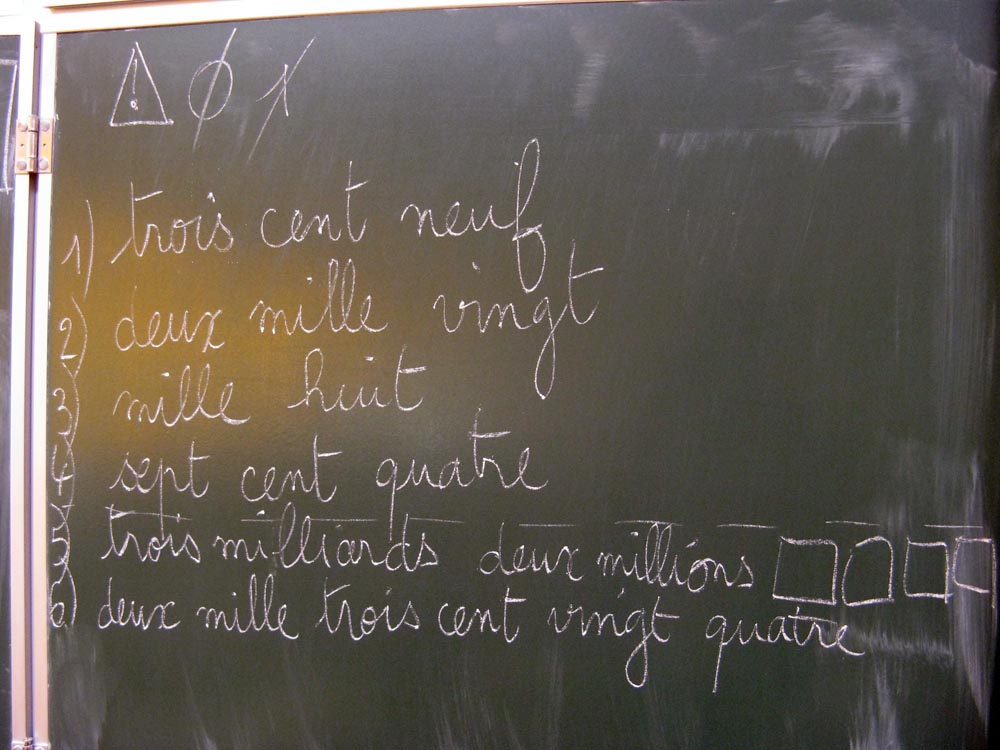 ! Ø 1
1) trois cent neuf
2) deux mille vingt
3) mille huit
4) sept cent quatre
5) trois milliards deux millions
6) deux mille trois cent vingt quatre